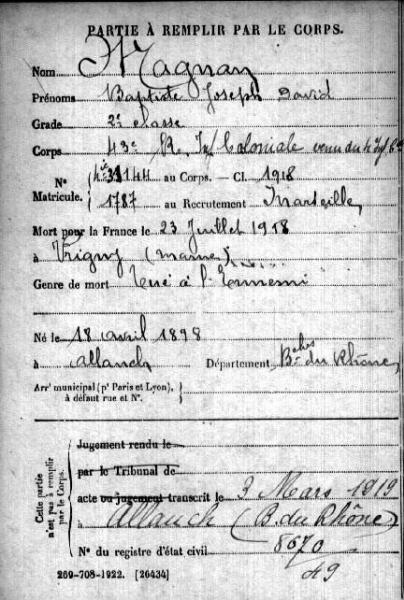 PARTIE À REMPLIR PAR LE CORPS.
Nom Magnan
Prénoms Baptiste Joseph David
Grade 2e classe
Corps 43e R. Inf Coloniale venu du
No Matricule. 33144 au Corps. — Cl. 1918
1787 au Recrutement Marseille
Mort pour la France le 23 Juillet 1918
à Vrigny (Marne)
Genre de mort Tué à l'Ennemi
Né le 18 avril 1898
à Allauch Département Bches du Rhône
Arrt municipal (pr Paris et Lyon),
à défaut rue et No.
Cette partie n'est pas à remplir par le Corps.
Jugement rendu le
par le Tribunal de
acte ou jugement transcrit le 3 Mars 1919
à Allauch (B. du Rhône)
No du registre d'état civil 8670
49
269-708-1922. [26434]